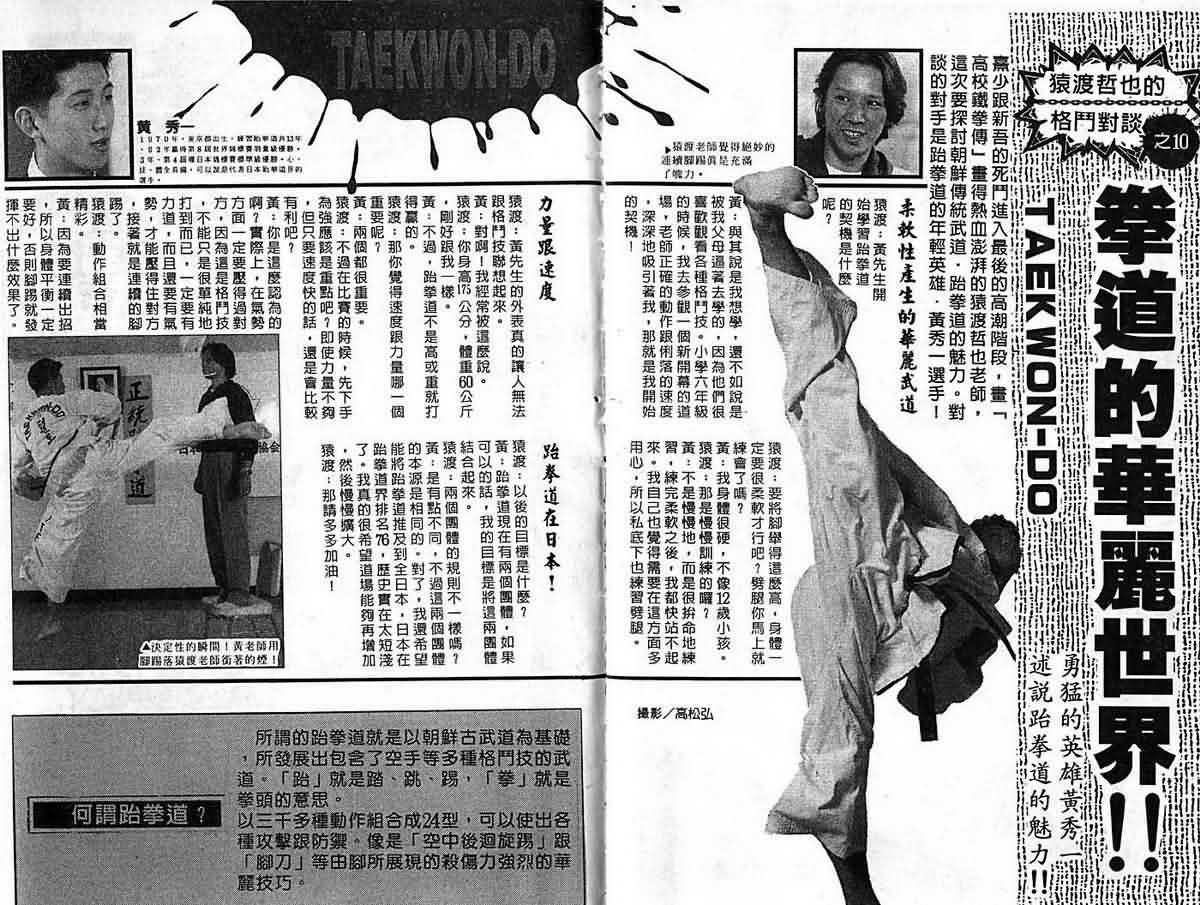 猿渡哲也的
格鬥對談
之10
拳道的華麗世界!!
TAEKWON-DO
勇猛的英雄黃秀一
述說跆拳道的魅力!!
熹少跟新吾的死鬥進入最後的高潮階段，畫「
高校鐵拳傳」畫得熱血澎湃的猿渡哲也老師，
這次要探討朝鮮傳統武道．跆拳道的魅力。對
談的對手是跆拳道的年輕英雄．黃秀一選手！
▶猿渡老師覺得絕妙的
連續腳踢真是充滿
了魄力。
柔軟性產生的華麗武道
猿渡：黃先生開
始學習跆拳道
的契機是什麼
呢？
黃：與其說是我想學，還不如說是
被我父母逼著去學的，因為他們很
喜歡觀看各種格鬥技。小學六年級
的時候，我去參觀一個新開幕的道
場，老師正確的動作跟俐落的速度
，深深地吸引著我，那就是我開始
的契機！
猿渡：要將腳舉得這麼高，身體一
定要很柔軟才行吧？劈腿你馬上就
練會了嗎？
黃：我身體很硬，不像12歲小孩。
猿渡：那是慢慢訓練的囉？
黃：不是慢慢地，而是很拚命地練
習，練完柔軟之後，我都快站不起
來。我自己也覺得需要在這方面多
用心，所以私底下也練習劈腿。
撮影／高松弘
TAEKWON-DO
黃 秀一
1970年，東京都出生，練習跆拳道共13年
力量跟速度
猿渡：黃先生的外表真的讓人無法
跟格鬥技聯想起來。
黃：對啊！我經常被這麼說。
猿渡：你身高175公分，體重60公斤
，剛好跟我一樣。
黃：不過，跆拳道不是高或重就打
得贏的。
猿渡：那你覺得速度跟力量哪一個
重要呢？
黃：兩個都很重要。
猿渡：不過在比賽的時候，先下手
為強應該是重點吧？即使力量不夠
，但只要速度快的話，還是會比較
有利吧？
黃：你是這麼認為的
啊？實際上，在氣勢
方面一定要壓得過對
方，因為這是格鬥技
，不能只是很單純地
打到而已，一定要有
力道，而且還要有氣
勢，才能壓得住對方
，接著就是連續的腳
踢了。
猿渡：動作組合相當
精彩。
黃：因為要連續出招
，所以身體平衡一定
要好，否則腳踢就發
揮不出什麼效果了。
跆拳道在日本！
猿渡：以後的目標是什麼？
黃：跆拳道現在有兩個團體，如果
可以的話，我的目標是將這兩團體
結合起來。
猿渡：兩個團體的規則不一樣嗎？
黃：是有點不同，不過這兩個團體
的本源是相同的。對了，我還希望
能將跆拳道推及到全日本，日本在
跆拳道界排名76，歷史實在太短淺
了。我真的很希望道場能夠再增加
，然後慢慢擴大。
猿渡：那請多多加油！
▲決定性的瞬間！黃老師用
腳踢落猿渡老師銜著的煙！
何謂跆拳道？
所謂的跆拳道就是以朝鮮古武道為基礎
，所發展出包含了空手等多種格鬥技的武
道。「跆」就是踏、跳、踢，「拳」就是
拳頭的意思。
以三千多種動作組合成24型，可以使出各
種攻擊跟防禦。像是「空中後迴旋踢」跟
「腳刀」等由腳所展現的殺傷力強烈的華
麗技巧。